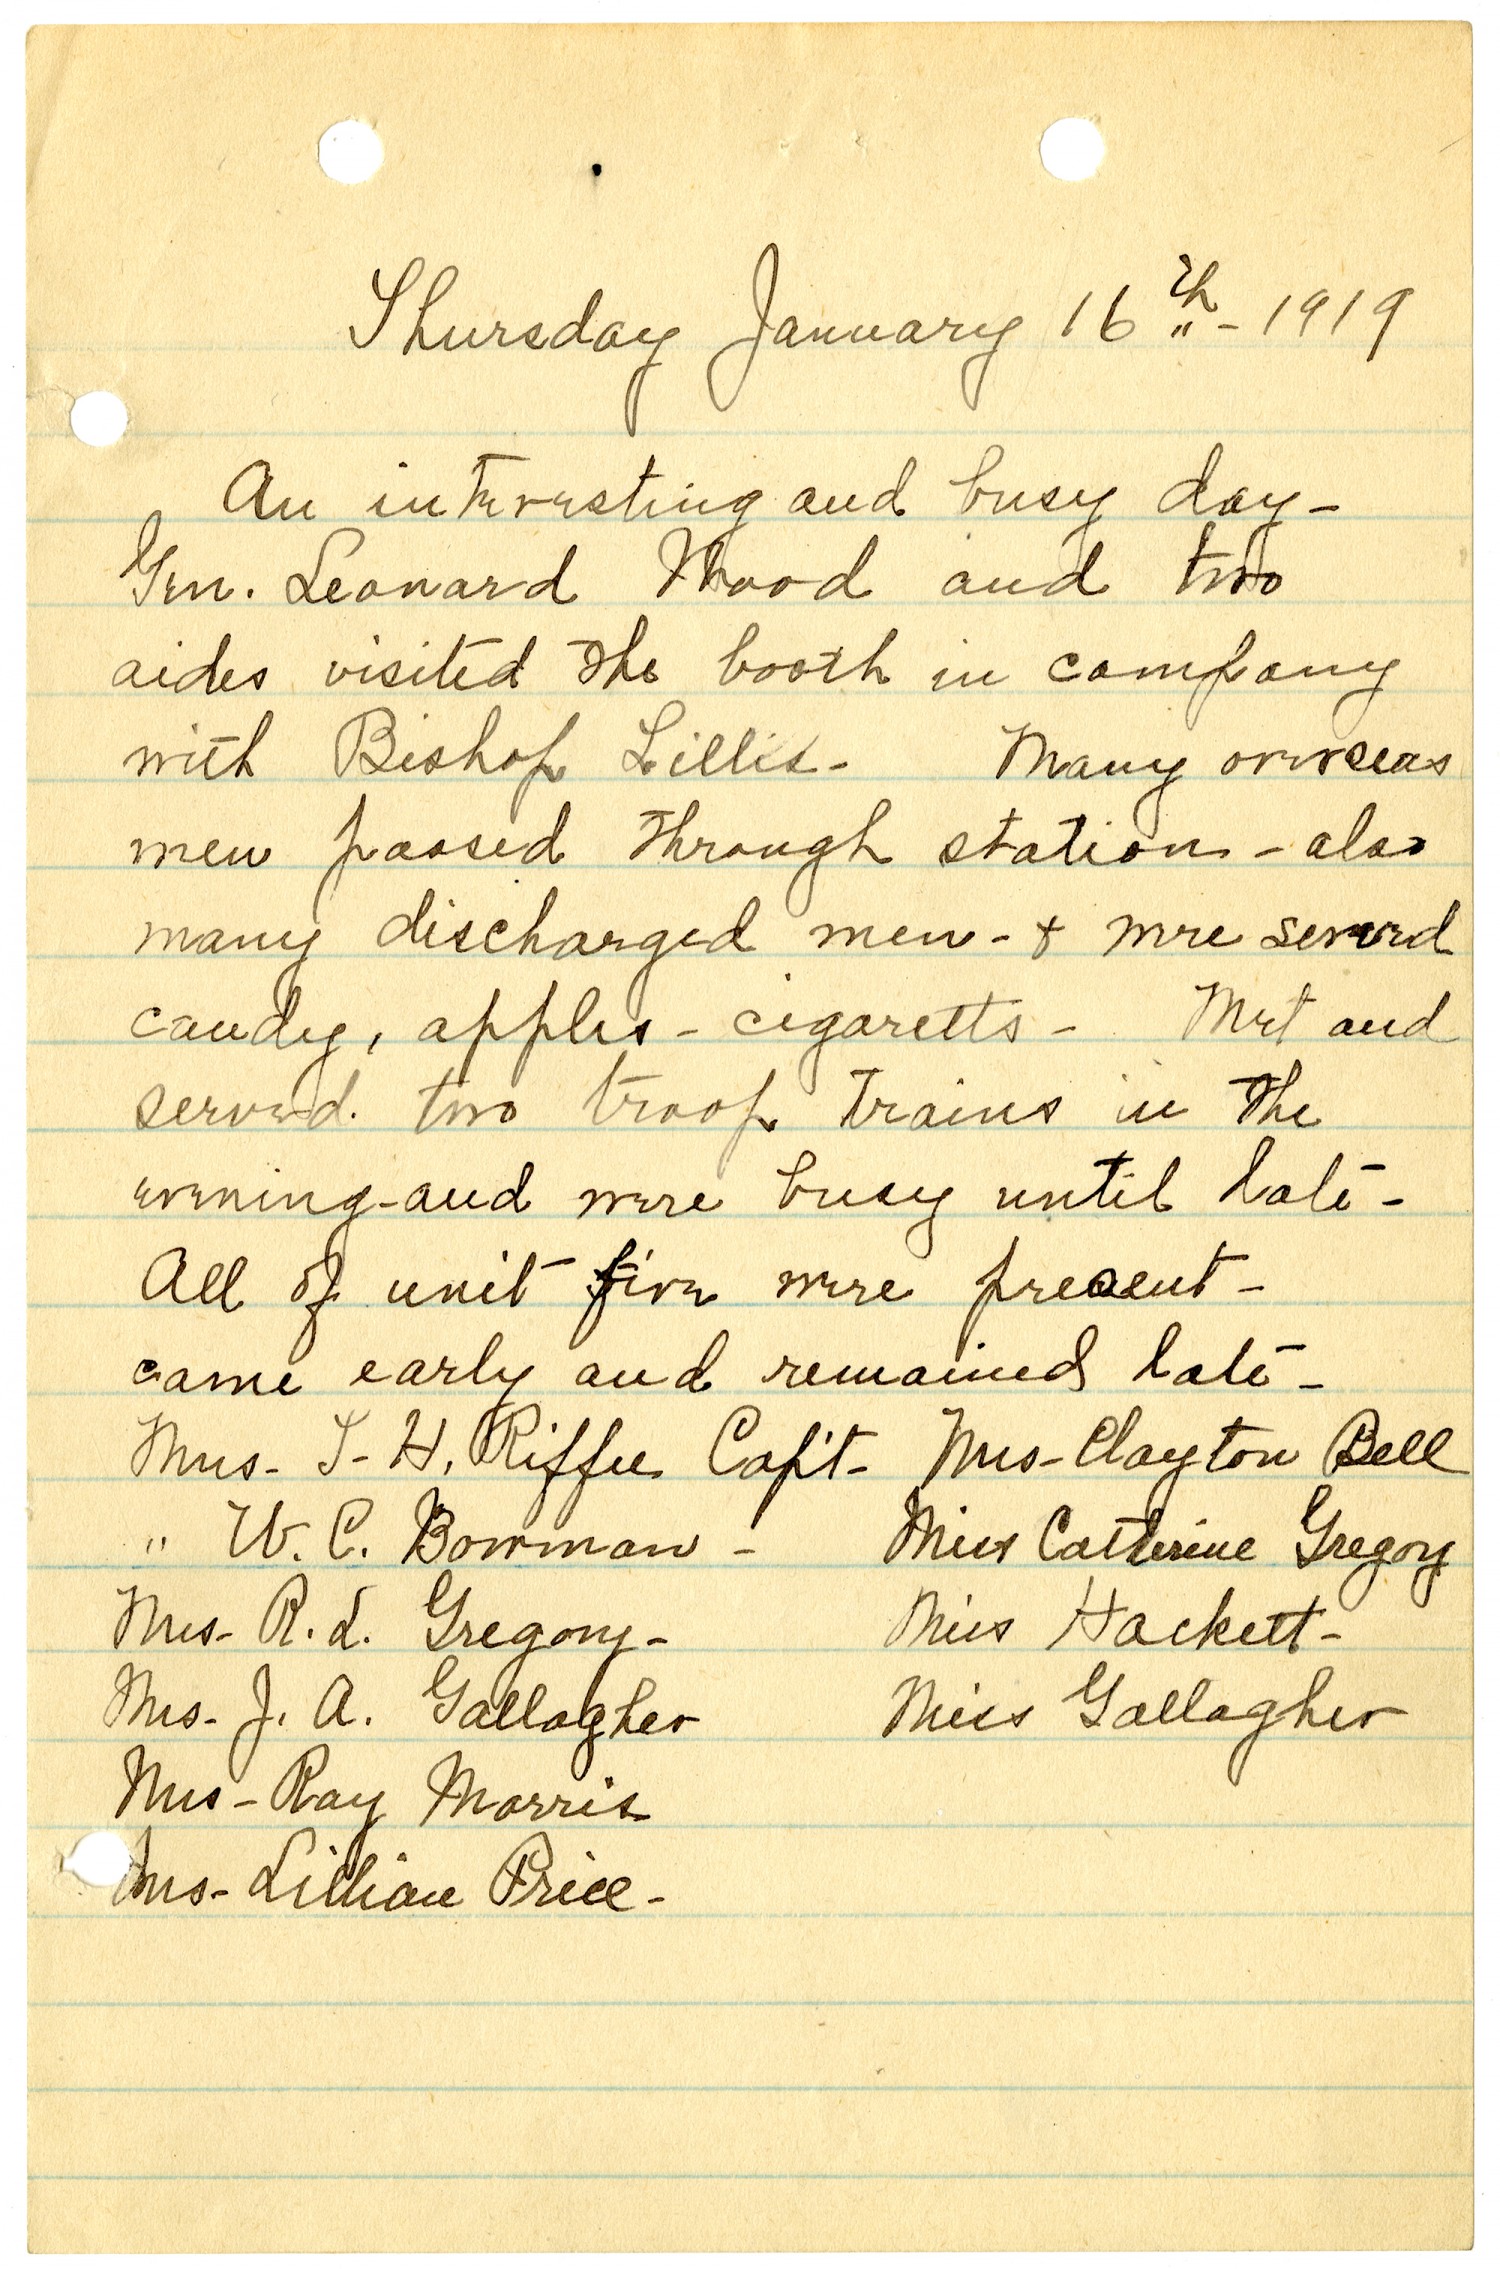 Thursday January 16th - 1919
An interesting and busy day -
Gen. Leonard Wood and two
aides visited the booth in company
with Bishop Lillis - Many overseas
men passed through station - also
many discharged men - & were served
candy, apples - cigaretts - Met and
served two troop trains in the
evening - and were busy until late -
All of unit five were present -
came early and remained late -
Mrs - T - H. Riffee Cap't - Mrs - Clayton Bell
" W. C. Bowman - Miss Catherine Gregory
Mrs - R. L. Gregory - Miss Hackett -
Mrs - J. A. Gallagher Miss Gallagher
Mrs - Ray Morris
Mrs - Lillian Price -